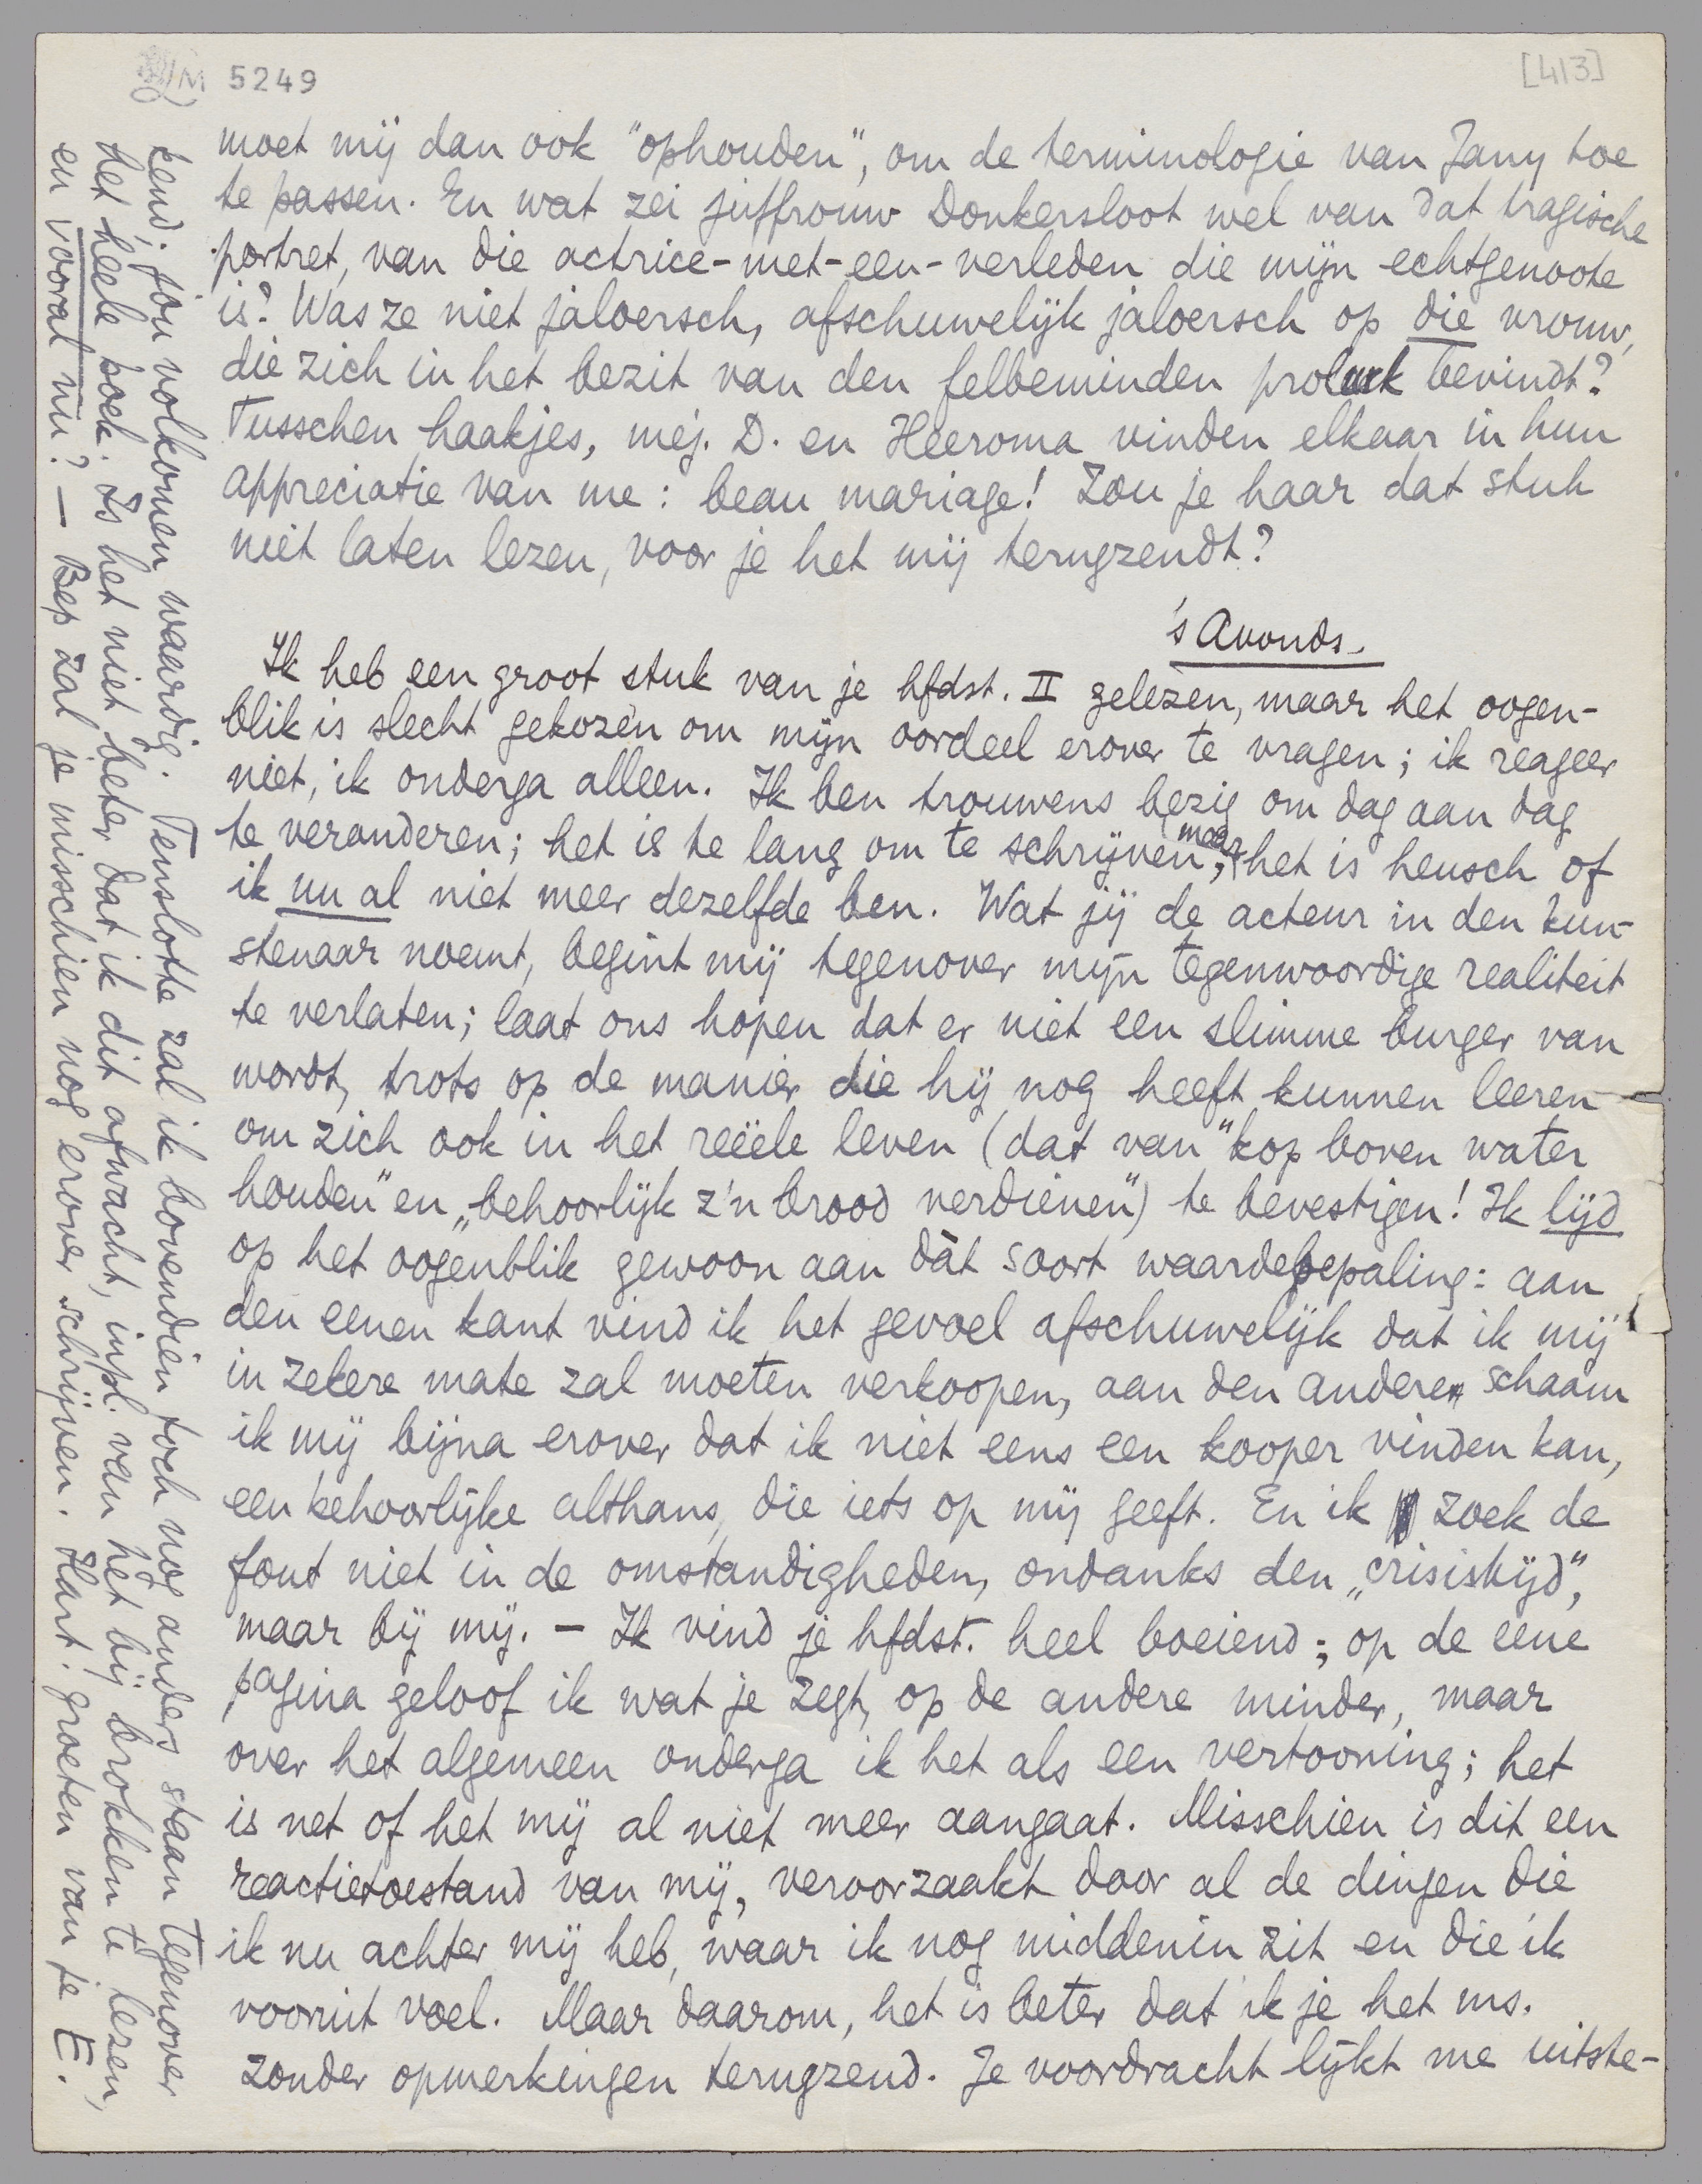 LM 5249
[413]
moet mij dan ook "ophouden", om de terminologie van Jany toe
te passen. En wat zei juffrouw Donkersloot wel van dat tragische
portret, van die actrice-met-een-verleden die mijn echtgenoote
is? Was ze niet jaloersch, afschuwelijk jaloersch op die vrouw,
die zich in het bezit van den felbeminden prolurk bevindt?
Tusschen haakjes, mej. D. en Heeroma vinden elkaar in hun
appreciatie van me: beau mariage! Zou je haar dat stuk
niet laten lezen, voor je het mij terugzendt?
's Avonds.
Ik heb een groot stuk van je hfdst. II gelezen, maar het oogen-
blik is slecht gekozen om mijn oordeel erover te vragen; ik reageer
niet, ik onderga alleen. Ik ben trouwens bezig om dag aan dag
te veranderen; het is te lang om te schrijven, maar het is heusch of
ik nu al niet meer dezelfde ben. Wat jij de acteur in den kun-
stenaar noemt, begint mij tegenover mijn tegenwoordige realiteit
te verlaten; laat ons hopen dat er niet een slimme burger van
wordt, trots op de manier die hij nog heeft kunnen leeren
om zich ook in het reëele leven (dat van "kop boven water
houden" en „behoorlijk z'n brood verdienen") te bevestigen! Ik lijd
op het oogenblik gewoon aan dàt soort waardebepaling: aan
den eenen kant vind ik het gevoel afschuwelijk dat ik mij
in zekere mate zal moeten verkoopen, aan den anderen schaam
ik mij bijna erover dat ik niet eens een kooper vinden kan,
een behoorlijke althans, die iets op mij geeft. En ik zoek de
fout niet in de omstandigheden, ondanks den „crisistijd",
maar bij mij. – Ik vind je hfdst. heel boeiend; op de eene
pagina geloof ik wat je zegt, op de andere minder, maar
over het algemeen onderga ik het als een vertooning; het
is net of het mij al niet meer aangaat. Misschien is dit een
reactietoestand van mij, veroorzaakt door al de dingen die
ik nu achter mij heb, waar ik nog middenin zit en die ik
vooruit voel. Maar daarom, het is beter dat ik je het ms.
zonder opmerkingen terugzend. Je voordracht lijkt me uitste-
kend; jou volkomen waardig. Tenslotte zal ik bovendien toch nog anders staan tegenover
het heele boek. Is het niet beter dat ik dit afwacht, inpl. van het bij brokken te lezen,
en vooral nu? – Bep zal je misschien nog erover schrijven. Hart. groeten van je E.